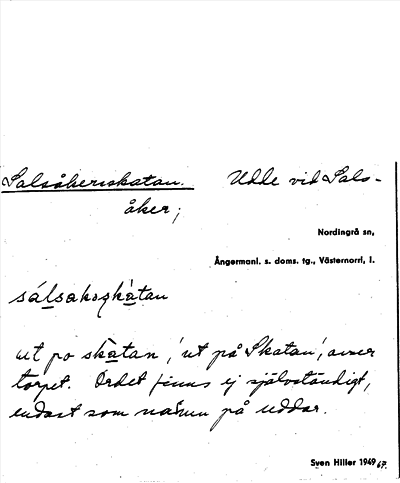 Salsåkersskatan. Udde vid Sals-
åker;
Nordingrå sn,
Ångermanl. s. doms. tg., Västernorrl, l.
sálsakoskàtan
ut po skàtan, 'ut på Skatan', avser
torpet. Ordet finns ej självständigt,
endast som namn på uddar.
Sven Hiller 1949